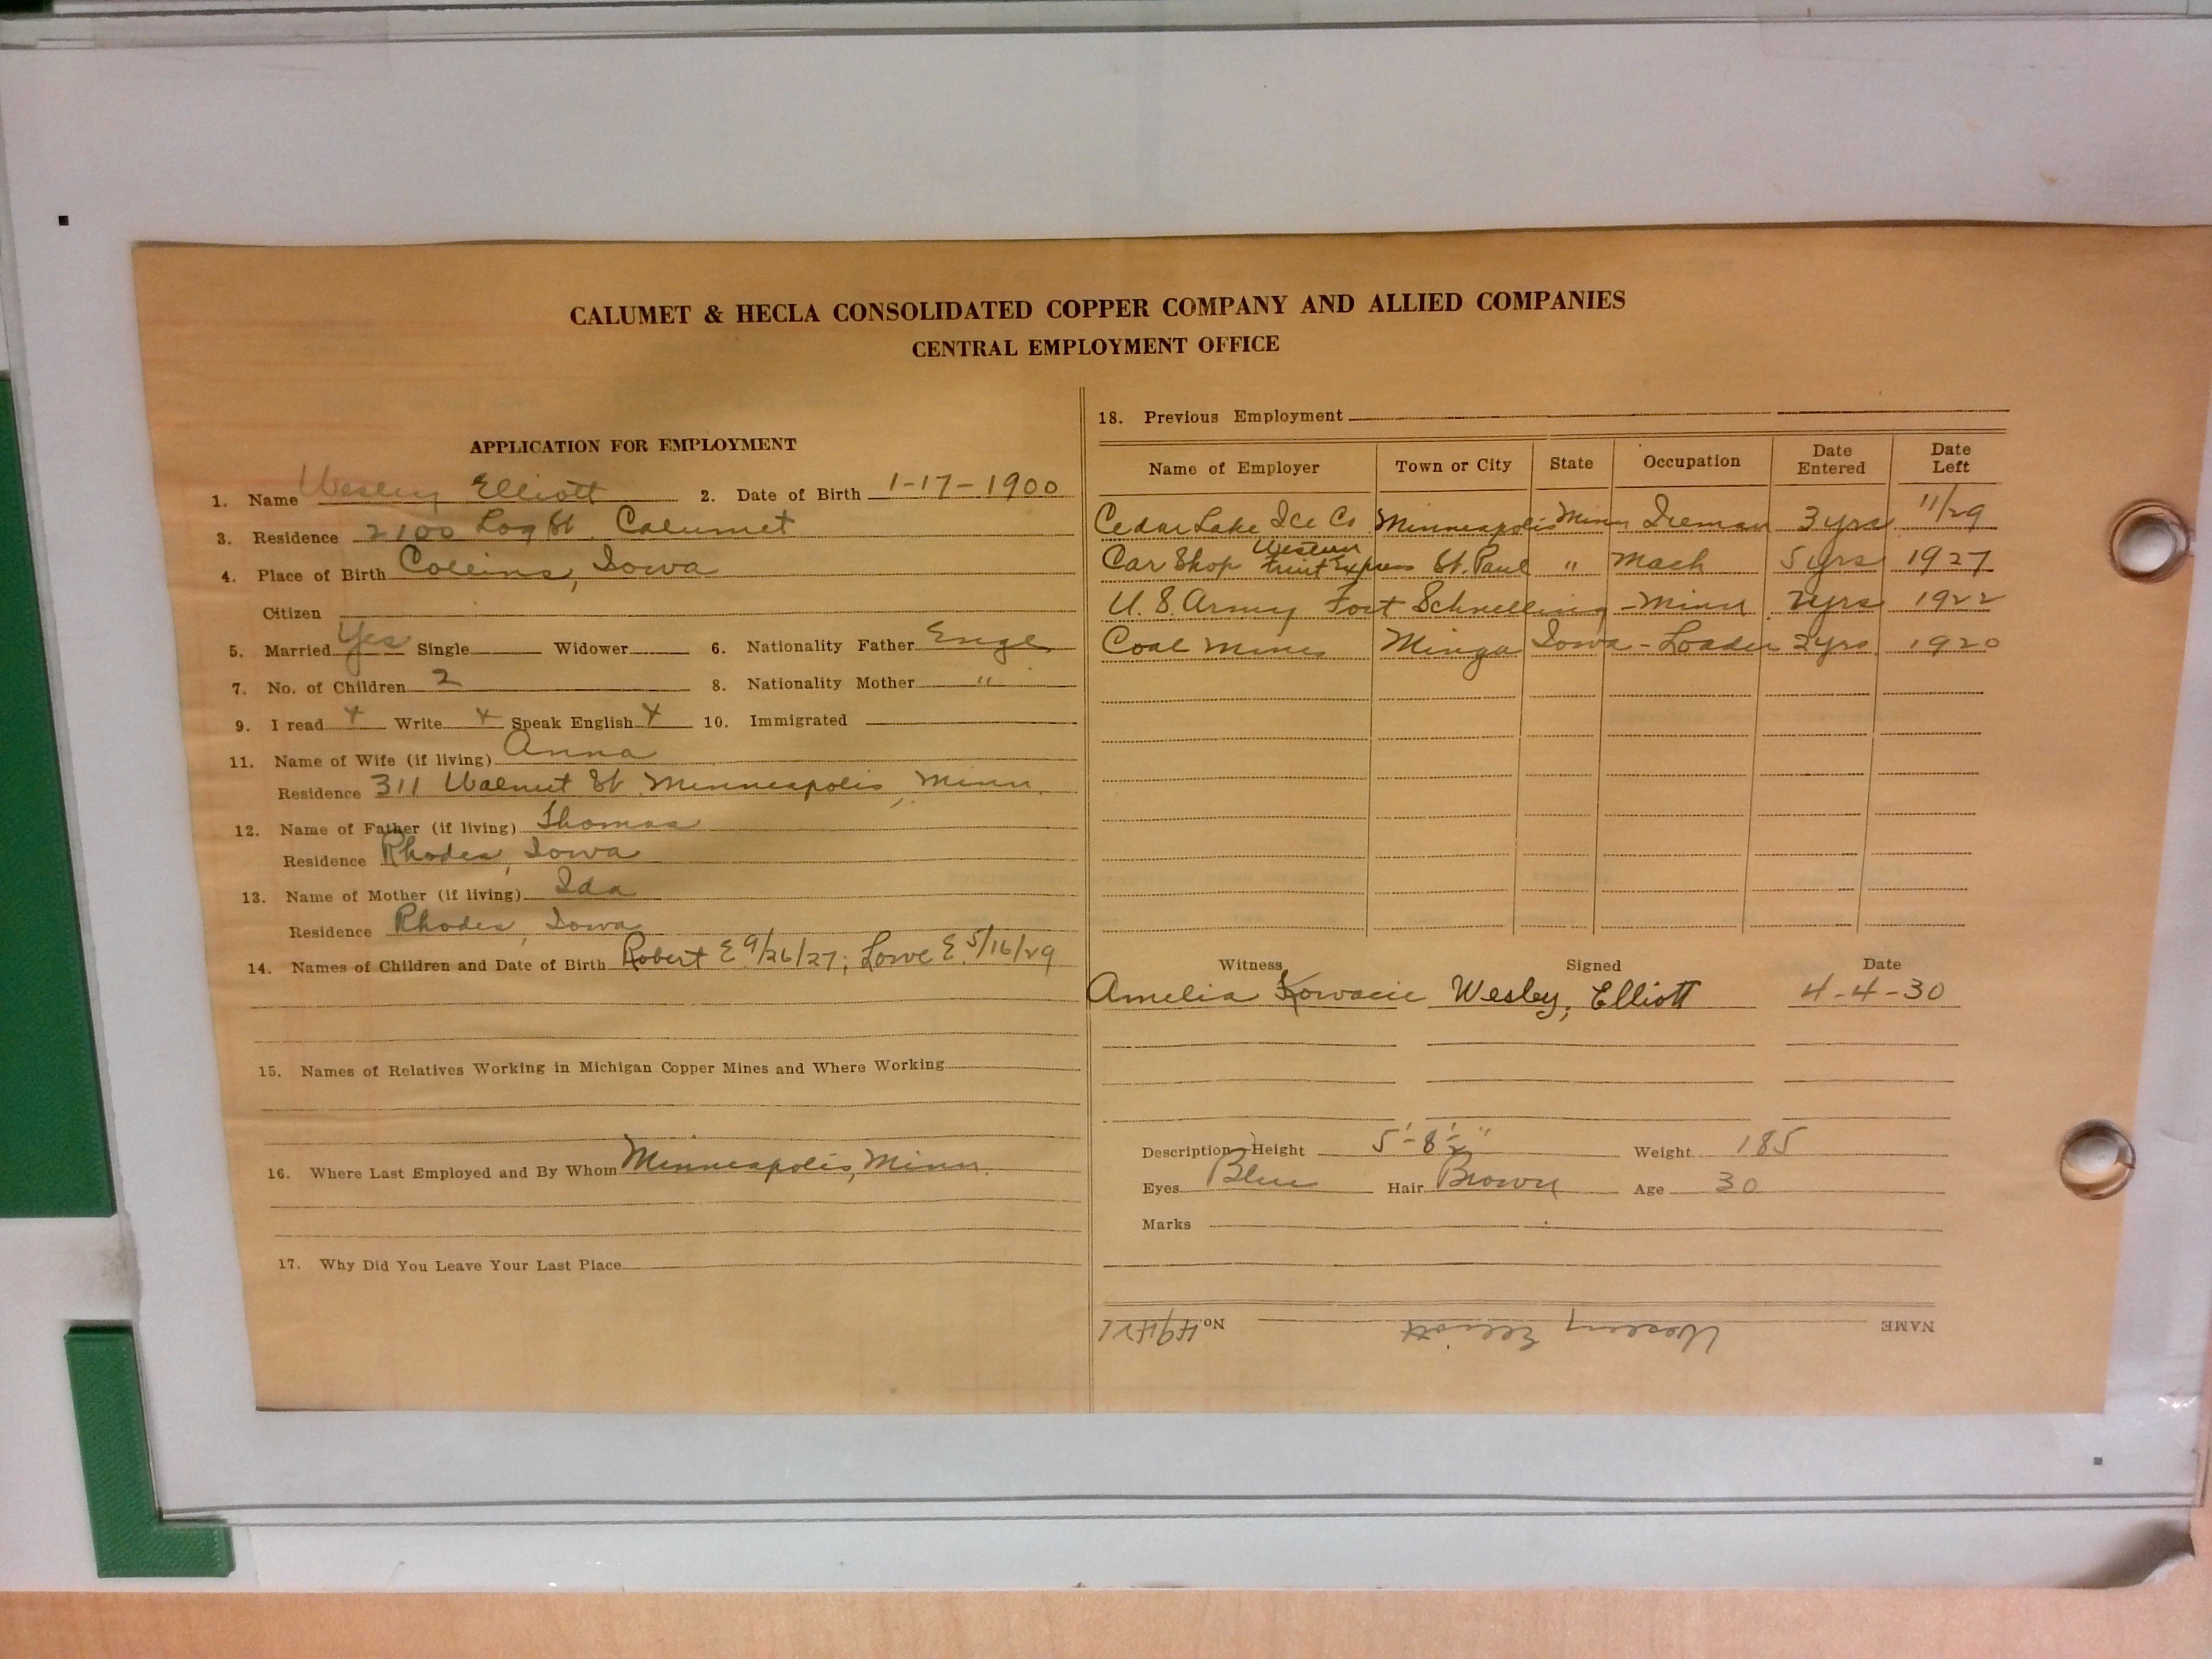 CALUMET & HECLA CONSOLIDATED COPPER COMPANY AND ALLIED COMPANIES
CENTRAL EMPLOYMENT OFFICE
APPLICATION FOR EMPLOYMENT
1. Name Wesley Elliott 2. Date of Birth 1-17-1900
3. Residence 2100 Log St. Calumet
4. Place of Birth Collins, Iowa
Citizen
5. Married Yes Single Widower 6. Nationality Father Engl
7. No. of Children 2 8. Nationality Mother "
9. I read x Write x Speak English x 10. Immigrated
11. Name of Wife (if living) Anna
Residence 311 Walnut St Minneapolis, Minn.
12. Name of Father (if living) Thomas
Residence Rhodes, Iowa
13. Name of Mother (if living) Ida
Residence Rhodes, Iowa
14. Names of Children and Date of Birth Robert E 9/26/27; Lowe E. 5/16/29
15. Names of Relatives Working in Michigan Copper Mines and Where Working
16. Where Last Employed and By Whom Minneapolis, Minn.
17. Why Did You Leave Your Last Place
18. Previous Employment
Name of Employer Town or City State Occupation Date Entered Date Left
Cedar Lake Ice Co Minneapolis Minn Iceman 3 yrs 11/29
Car Shop Western Fruit Express St. Paul " Mach 5 yrs 1927
U.S. Army Fort Schnelling - Minn 2 yrs 1922
Coal Mines Minga Iowa - Loader 2 yrs. 1920
Witness Signed Date
Amelia Kovacic Wesley, Elliott 4-4-30
Description Height 5'-8½" Weight 185
Eyes Blue Hair Brown Age 30
Marks
NAME Wesley Elliott No. 49421